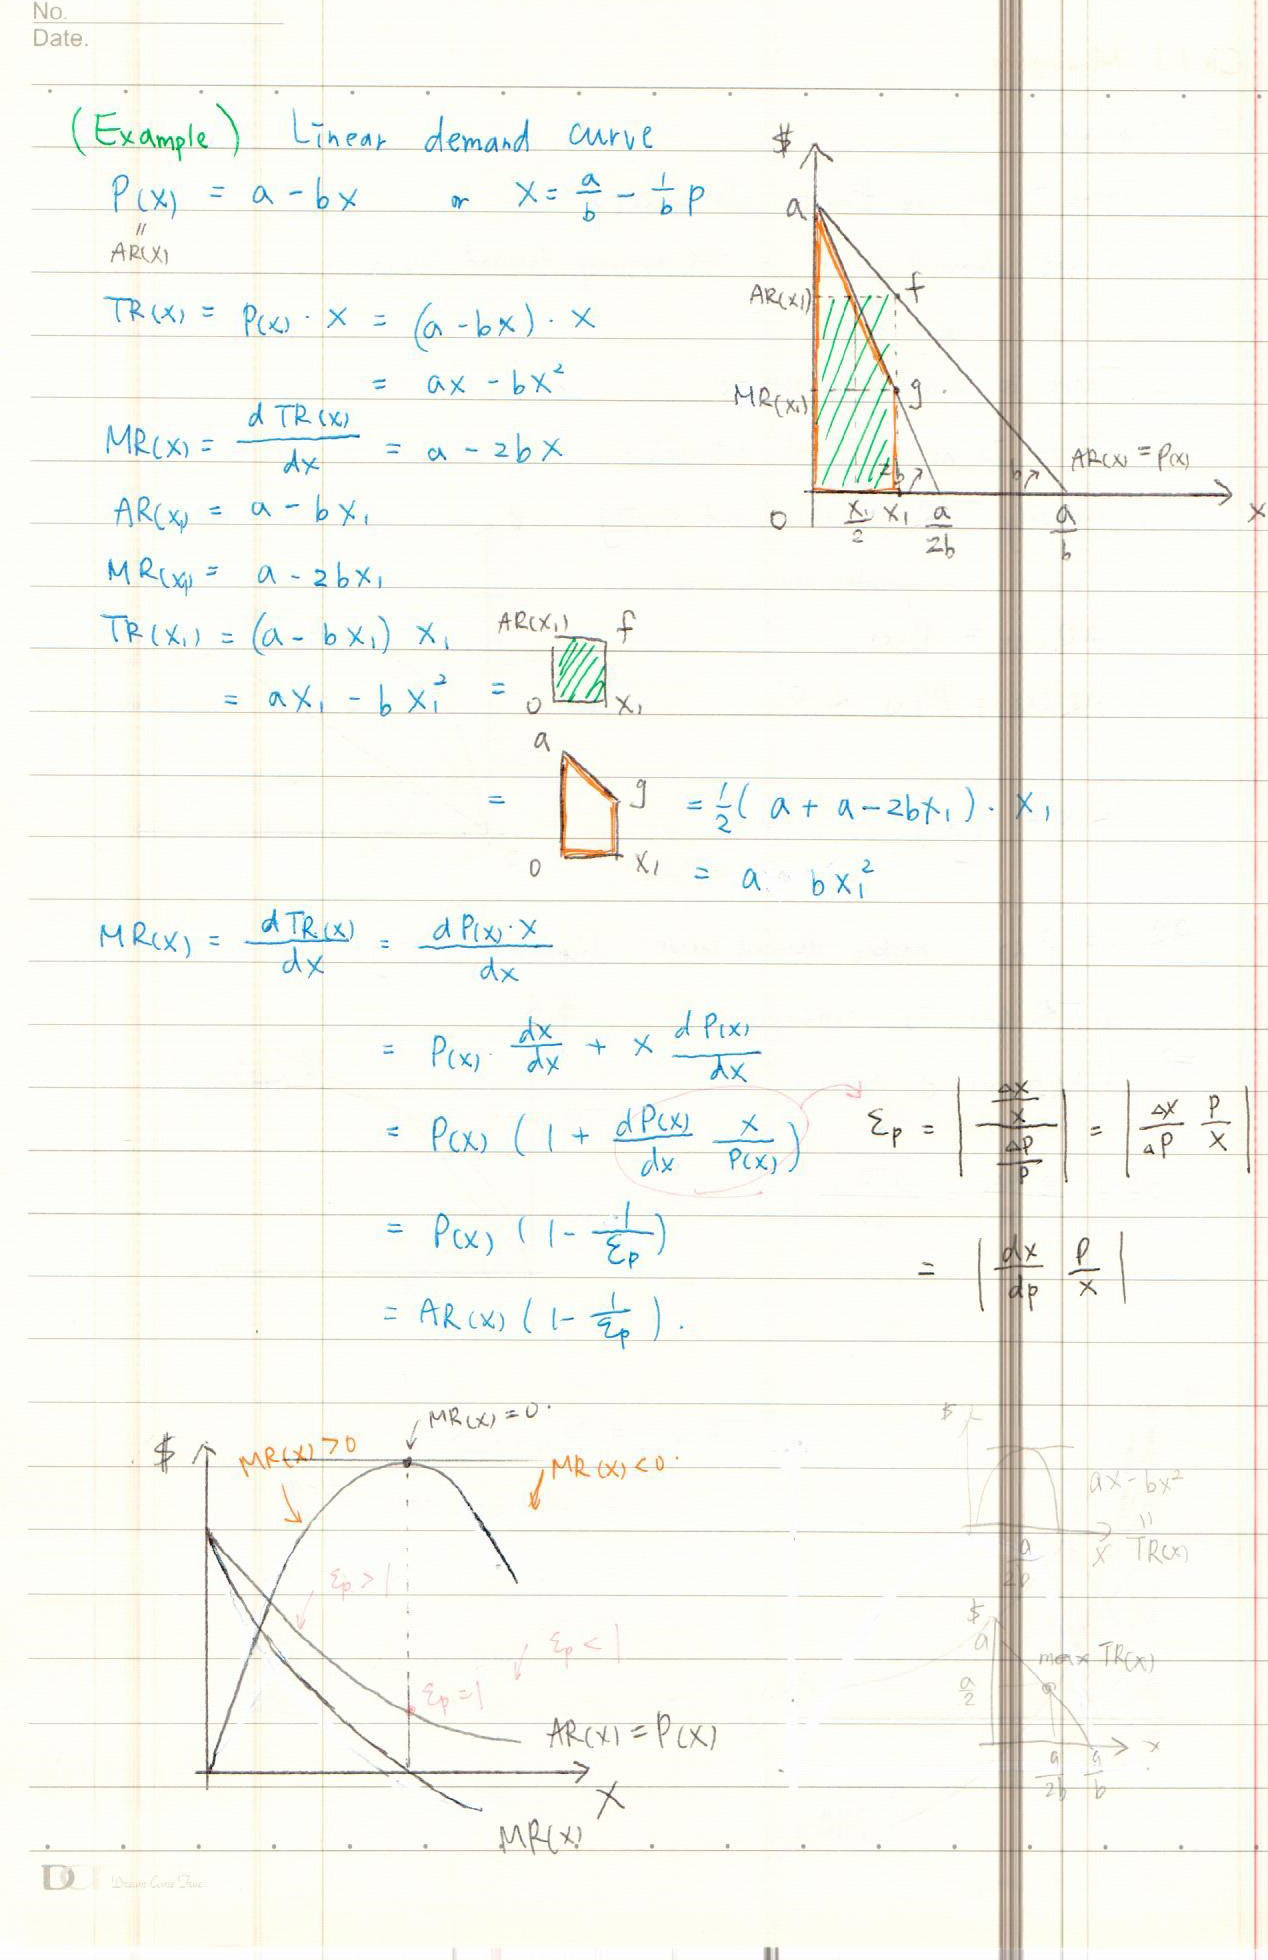 No.
Date.
(Example) Linear demand curve
P(x) = a - bx or x = a/b - 1/b p
"
AR(x)
TR(x) = P(x) · x = (a - bx) · x
= ax - bx²
MR(x) = d TR(x)/dx = a - 2bx
AR(x₁) = a - bx₁
MR(x₁) = a - 2bx₁
TR(x₁) = (a - bx₁) x₁
= ax₁ - bx₁² =
AR(x₁) f
0 x₁
a
= g = ½(a + a - 2bx₁) · x₁
0 x₁ = a bx₁²
$
a
AR(x₁) f
MR(x₁) g
2b b AR(x) = P(x)
0 x₁/2 x₁ a/2b a/b x
MR(x) = d TR(x)/dx = d P(x)·x/dx
= P(x) · dx/dx + x d P(x)/dx
= P(x) (1 + dP(x)/dx x/P(x))
= P(x) (1 - 1/εp)
= AR(x) (1 - 1/εp).
εp = | Δx/x / Δp/p | = | Δx/Δp p/x |
= | dx/dp p/x |
MR(x) = 0.
$ MR(x) > 0 MR(x) < 0.
εp > 1
εp < 1
εp = 1
AR(x) = P(x)
x
MR(x)
$
ax - bx²
"
a/2b x TR(x)
$
a
max TR(x)
a/2
a/2b a/b x
D
Dream Come True